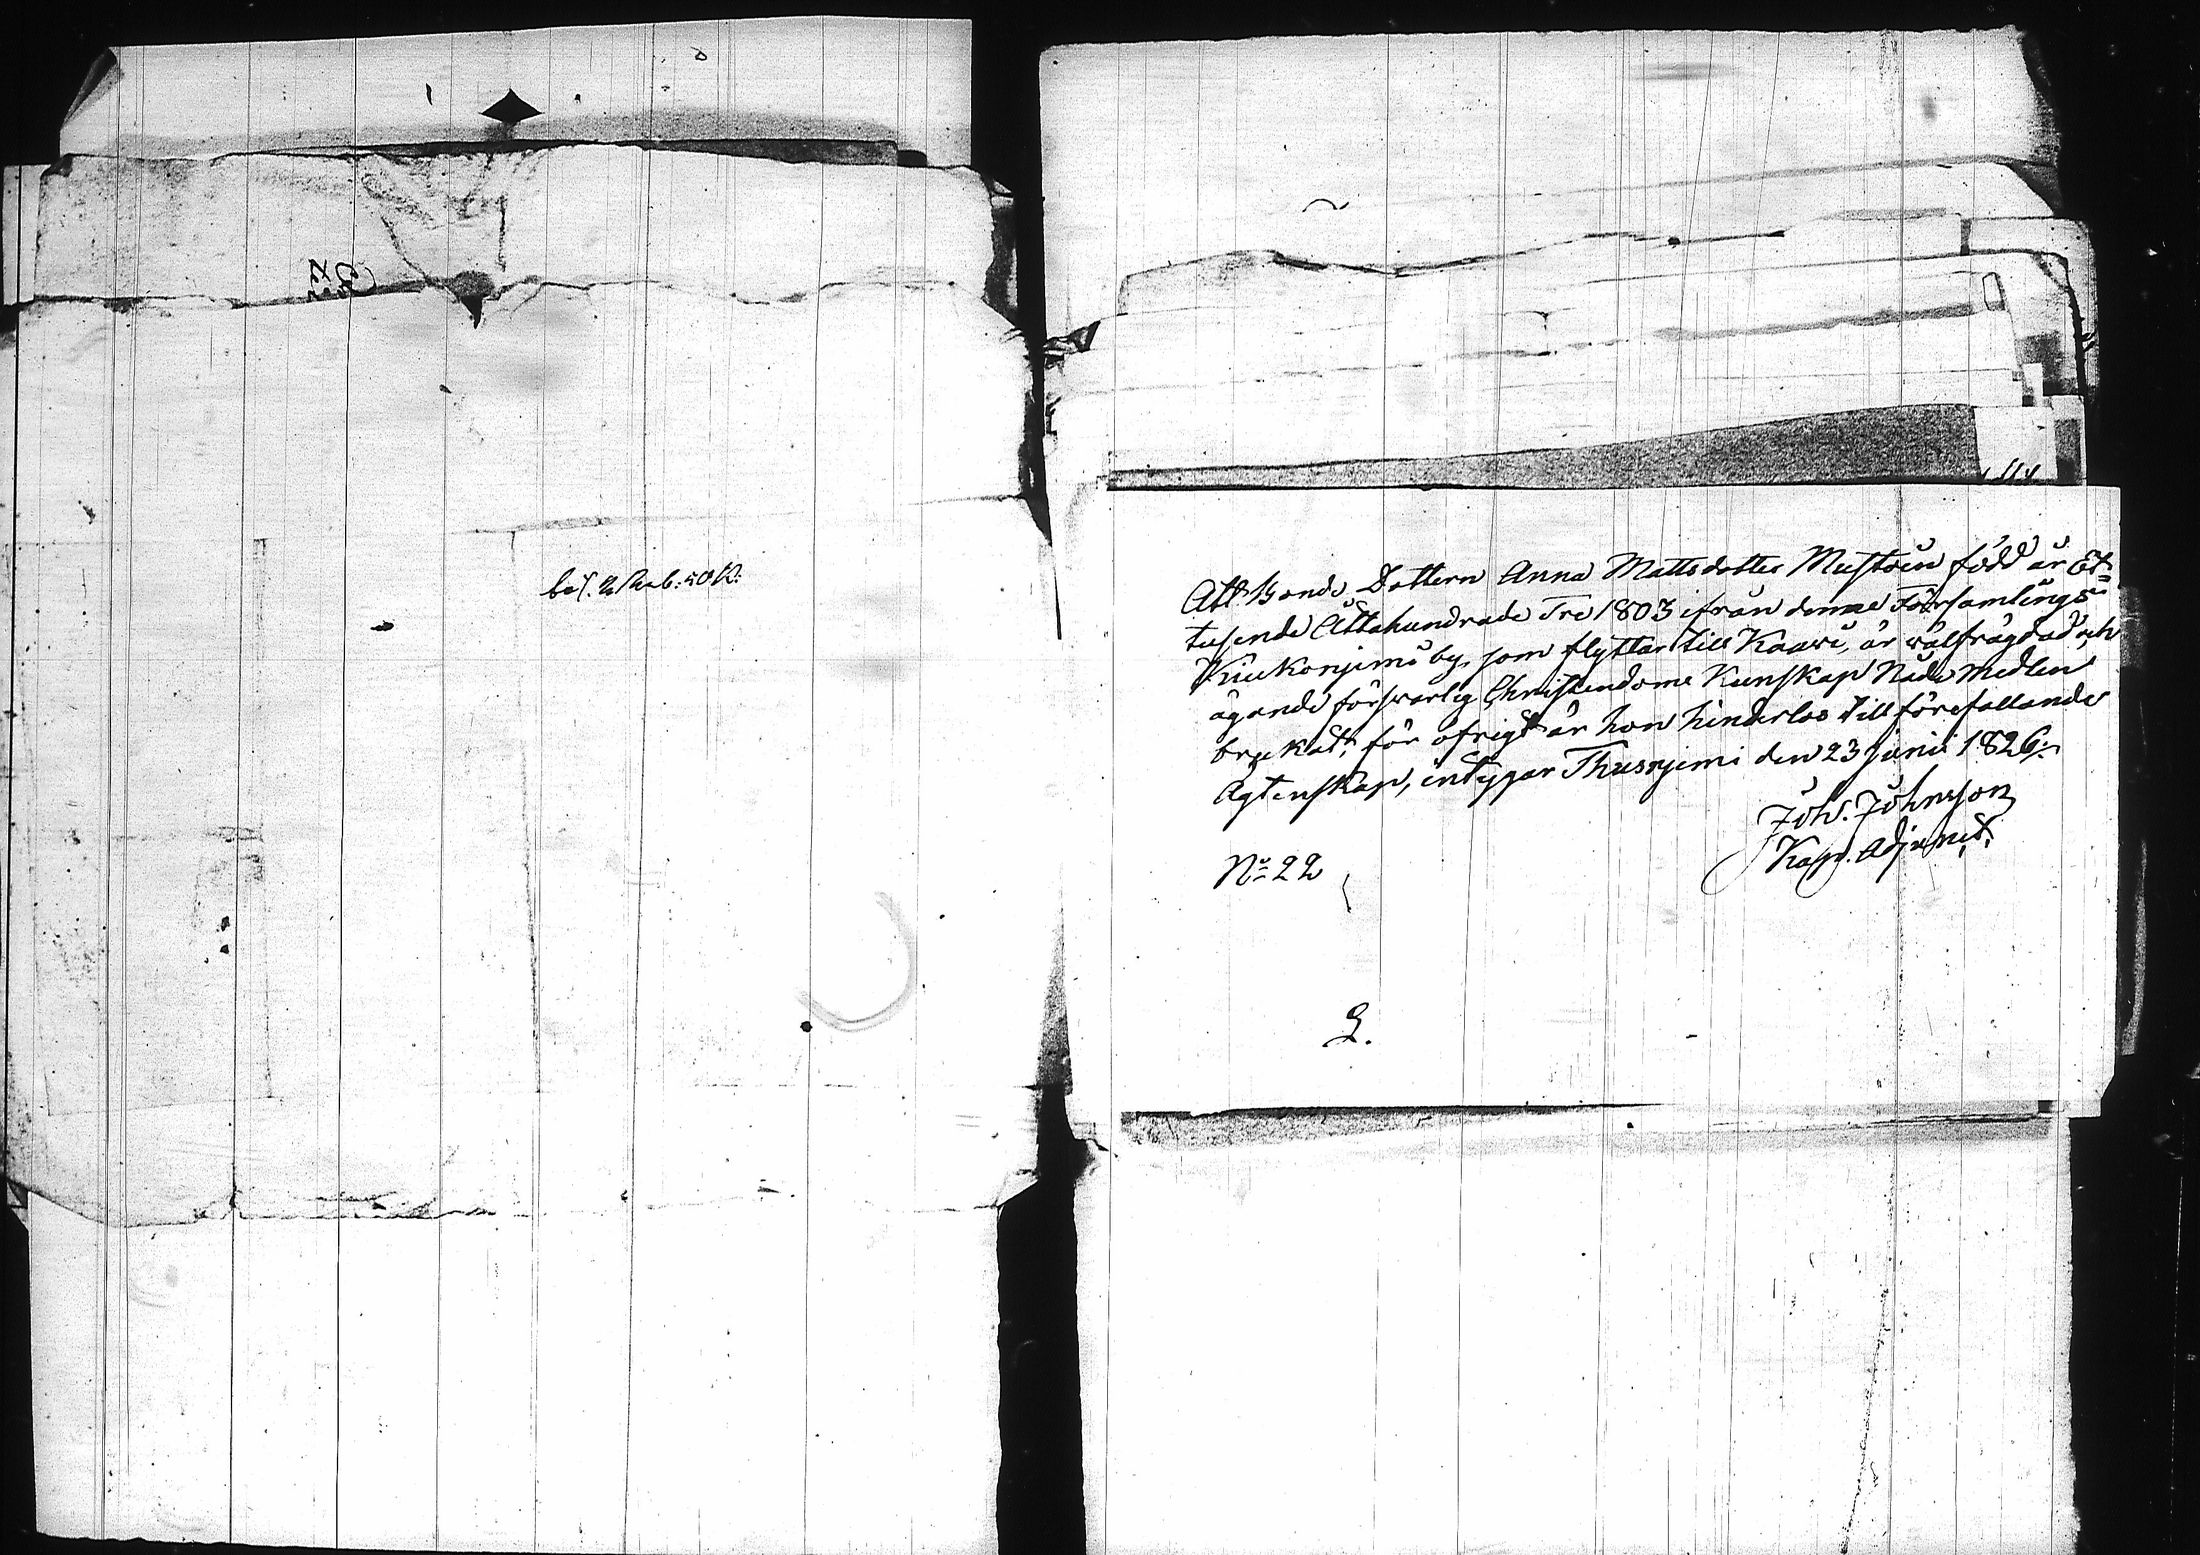 bet. 2 Rub: 50 K:
Att Bonde Dottern Anna Mattsdotter Mustoin född år Et=
tusende Åttahundrade Tre 1803 ifrån denne Församlings
Kiukonjemi by, som flyttar till Kaawi, är wälfrägdad, och
ägande förswarlig Christendoms Kunskap Nåde Medlen
brukat, för öfrigt är hon hinderlös till förefallande
Ägtenskap, intygar Thusnjemi den 23 junii 1826.
Joh. Johnsson
Kap. Adjunct.
No 22
2.